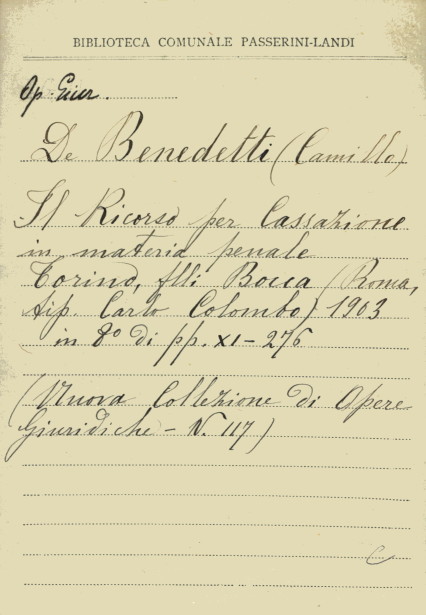 BIBLIOTECA COMUNALE PASSERINI-LANDI
Op. Giur.
De Benedetti (Camillo)
Il Ricorso per Cassazione
in materia penale
Torino, flli Bocca (Roma,
tip. Carlo Colombo) 1903
in 8º di pp. XI-276
(Nuova Collezione di Opere
Giuridiche - N. 117)
C